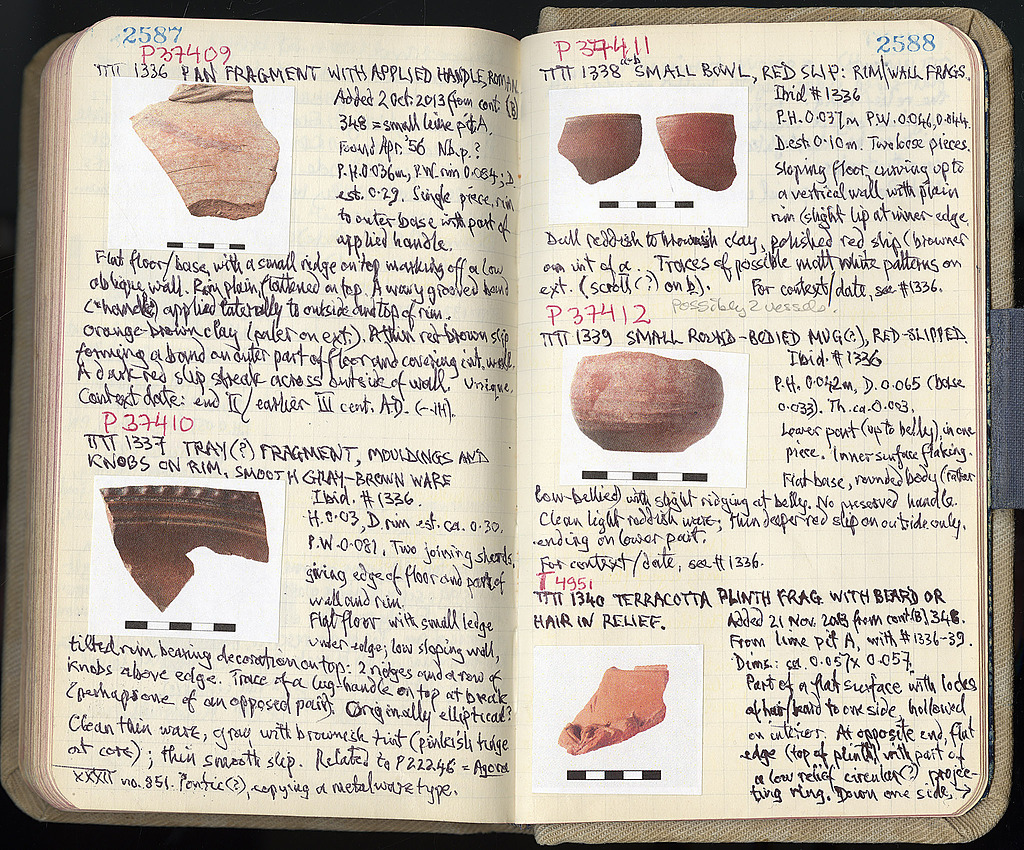 2587
P 37409
ΠΠ 1336 PAN FRAGMENT WITH APPLIED HANDLE, ROMAN.
Added 2 Oct. 2013 from cont. (B)
348 = small lime pit A.
Found Apr. '56 Nb.p.?
P.H. 0.036m, P.W. rim 0.084, D.
est. 0.29. Single piece, rim
to outer base with part of
applied handle.
Flat floor/base, with a small ridge on top marking off a low
oblique wall. Rim plain flattened on top. A wavy grooved band
("handle") applied laterally to outside and top of rim.
orange-brown clay (paler on ext.). A thin red-brown slip
forming a band on outer part of floor and covering int. wall.
A dark red slip streak across outside of wall. Unique.
Context date: end II / earlier III cent. A.D. (-JH).
P 37410
ΠΠ 1337 TRAY(?) FRAGMENT, MOULDINGS AND
KNOBS ON RIM, SMOOTH GRAY-BROWN WARE
Ibid. #1336.
H. 0.03, D. rim est. ca. 0.30.
P.W. 0.081. Two joining sherds,
giving edge of floor and part of
wall and rim.
Flat floor with small ledge
under edge; low sloping wall,
tilted rim bearing decoration on top: 2 ridges and a row of
knobs above edge. Trace of a lug-handle on top at break
(perhaps one of an opposed pair). Originally elliptical?
Clean thin ware, gray with brownish tint (pinkish tinge
at core); thin smooth slip. Related to P 22246 = Agora
XXXII no. 851. Pontic(?), copying a metalware type.
P 37411
2588
ΠΠ 1338 a-b SMALL BOWL, RED SLIP: RIM/WALL FRAGS.
Ibid #1336
P.H. 0.037m P.W. 0.046, 0.044.
D. est. 0.10m. Two loose pieces.
sloping floor, curving up to
a vertical wall with plain
rim (slight lip at inner edge.
Dull reddish to brownish clay, polished red slip (browner
on int of a. Traces of possible matt white patterns on
ext. (scroll(?) on b). For context/date, see #1336.
Possibly 2 vessels.
P 37412
ΠΠ 1339 SMALL ROUND-BODIED MUG(?), RED-SLIPPED
Ibid. #1336
P.H. 0.042m, D. 0.065 (base
0.033). Th. ca. 0.003.
Lower part (up to belly), in one
piece. Inner surface flaking.
Flat base, rounded body (rather
low-bellied) with slight ridging at belly. No preserved handle.
Clean light reddish ware; thin deeper red slip on outside only,
ending on lower part.
For context/date, see #1336.
T 4951
ΠΠ 1340 TERRACOTTA PLINTH FRAG. WITH BEARD OR
HAIR IN RELIEF.
Added 21 Nov. 2013 from cont (B) 348.
From lime pit A, with #1336-39.
Dims.: ca 0.057 x 0.057.
Part of a flat surface with locks
of hair/beard to one side, hollowed
on interior. At opposite end, flat
edge (top of plinth) with part of
a low relief circular(?) projec-
ting ring. Down one side, →